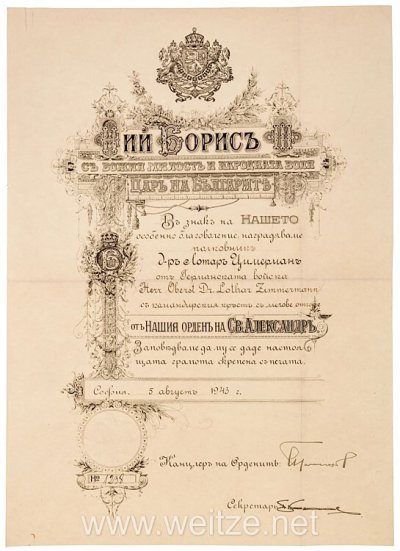 НИЙ БОРИСЪ III
СЪ БОЖИЯ МИЛОСТЬ И НАРОДНАТА ВОЛЯ
ЦАРЬ НА БЪЛГАРИТѢ
Въ знакъ на НАШЕТО
особенно благоволение, награждаваме
полковникъ
Д-ръ Лотаръ Цимерманъ
отъ Германската войска
Herr Oberst Dr. Lothar Zimmermann
съ командирския кръстъ съ мечове
отъ НАШИЯ ОРДЕНЪ НА СВ. АЛЕКСАНДРЪ.
Заповѣдваме да му се даде настоя-
щата грамота скрепена съ печата.
София, 5 августъ 1943 г.
Канцлеръ на Орденитѣ:
№
Секретарь:
www.weitze.net